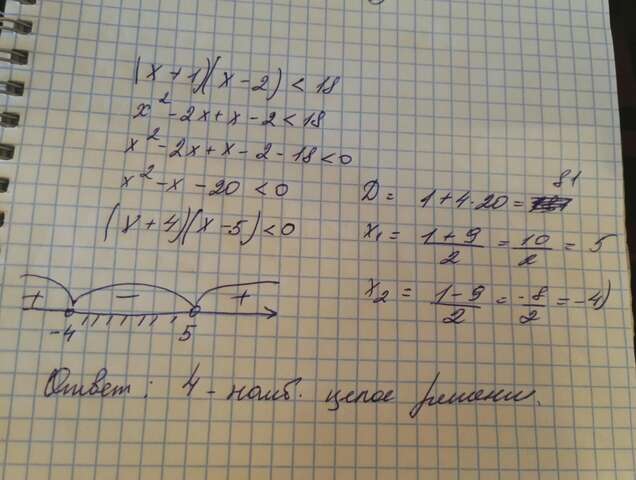 (x + 1)(x - 2) < 18
x² - 2x + x - 2 < 18
x² - 2x + x - 2 - 18 < 0
x² - x - 20 < 0
(x + 4)(x - 5) < 0
D = 1 + 4 · 20 = 81
x₁ = (1 + 9)/2 = 10/2 = 5
x₂ = (1 - 9)/2 = -8/2 = -4)
+ - +
-4 5
Ответ: 4 - наиб. целое решение.